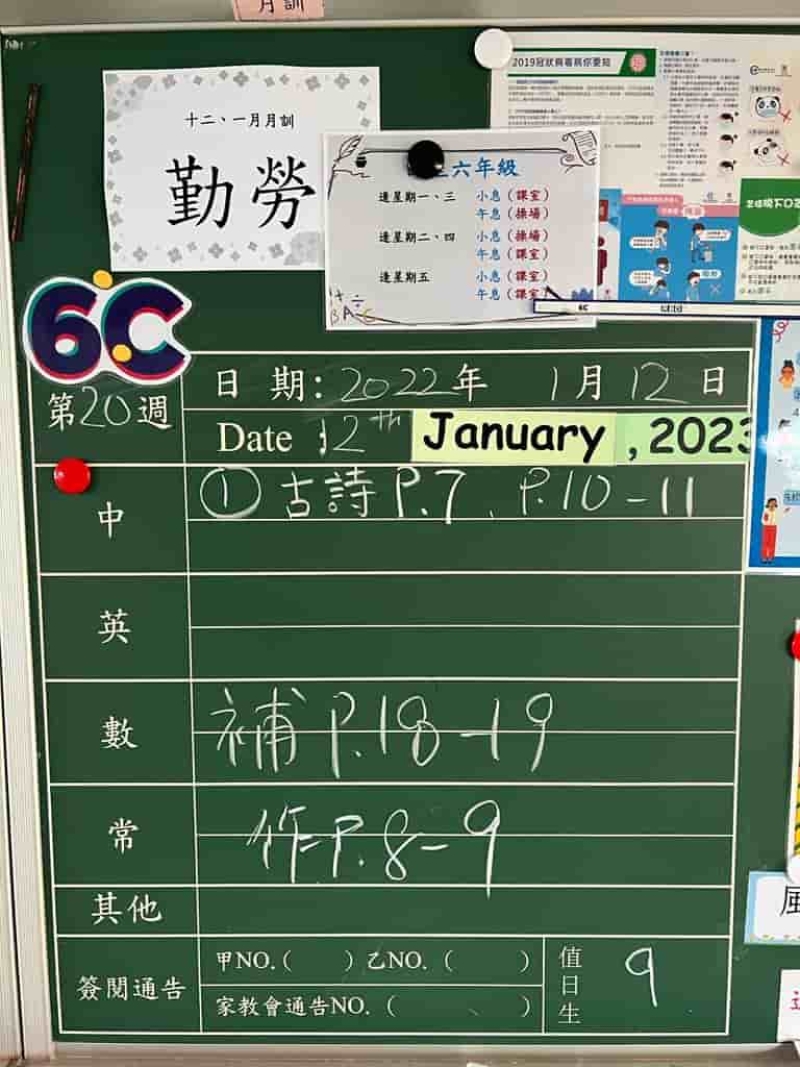 月訓
十二、一月月訓
勤勞
六年級
逢星期一、三 小息（課室）
午息（操場）
逢星期二、四 小息（操場）
午息（課室）
逢星期五 小息（課室）
午息（課室）
2019冠狀病毒病你要知
6C
第20週
日 期：2022年 1月12日
Date :12th January, 2023
中 ① 古詩 P.7、P.10-11
英
數 補 P.18-19
常 作 P.8-9
其他
簽閱通告 甲NO.( ) 乙NO. ( )
家教會通告NO. ( 、 )
值日生 9
風